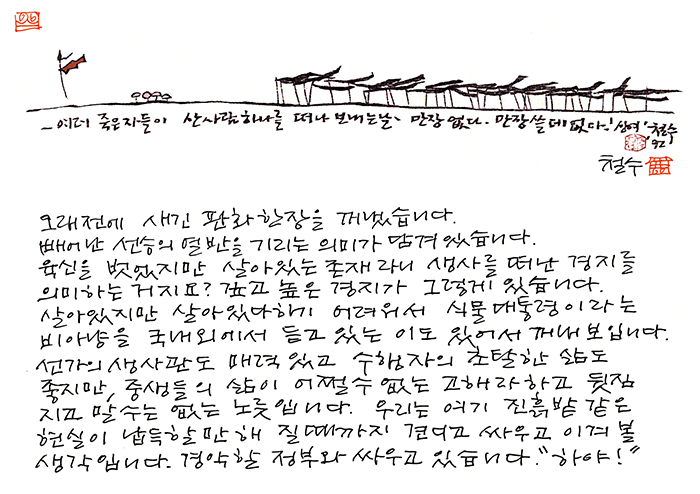 06
- 여러 죽은자들이 산사람하나를 떠나 보내는날、 만장 없다. 만장쓸데 없다. '상여' 철수 '92
철수
오래전에 새긴 판화 한장을 꺼냈습니다.
빼어난 선승의 열반을 기리는 의미가 담겨 있습니다.
육신을 벗었지만 살아있는 존재라니 생사를 떠난 경지를
의미하는 거지요? 깊고 높은 경지가 그렇게 있습니다.
살아있지만 살아있다하기 어려워서 식물대통령이라는
비아냥을 국내외에서 듣고 있는 이도 있어서 꺼내 보입니다.
선가의 생사관도 매력있고 수행자의 초탈한 삶도
좋지만, 중생들의 삶이 어쩔수 없는 고해라하고 뒷짐
지고 말 수는 없는 노릇입니다. 우리는 여기 진흙밭 같은
현실이 납득할만 해 질때까지 견디고 싸우고 이겨 볼
생각입니다. 경악할 정부와 싸우고 있습니다. "하야!"